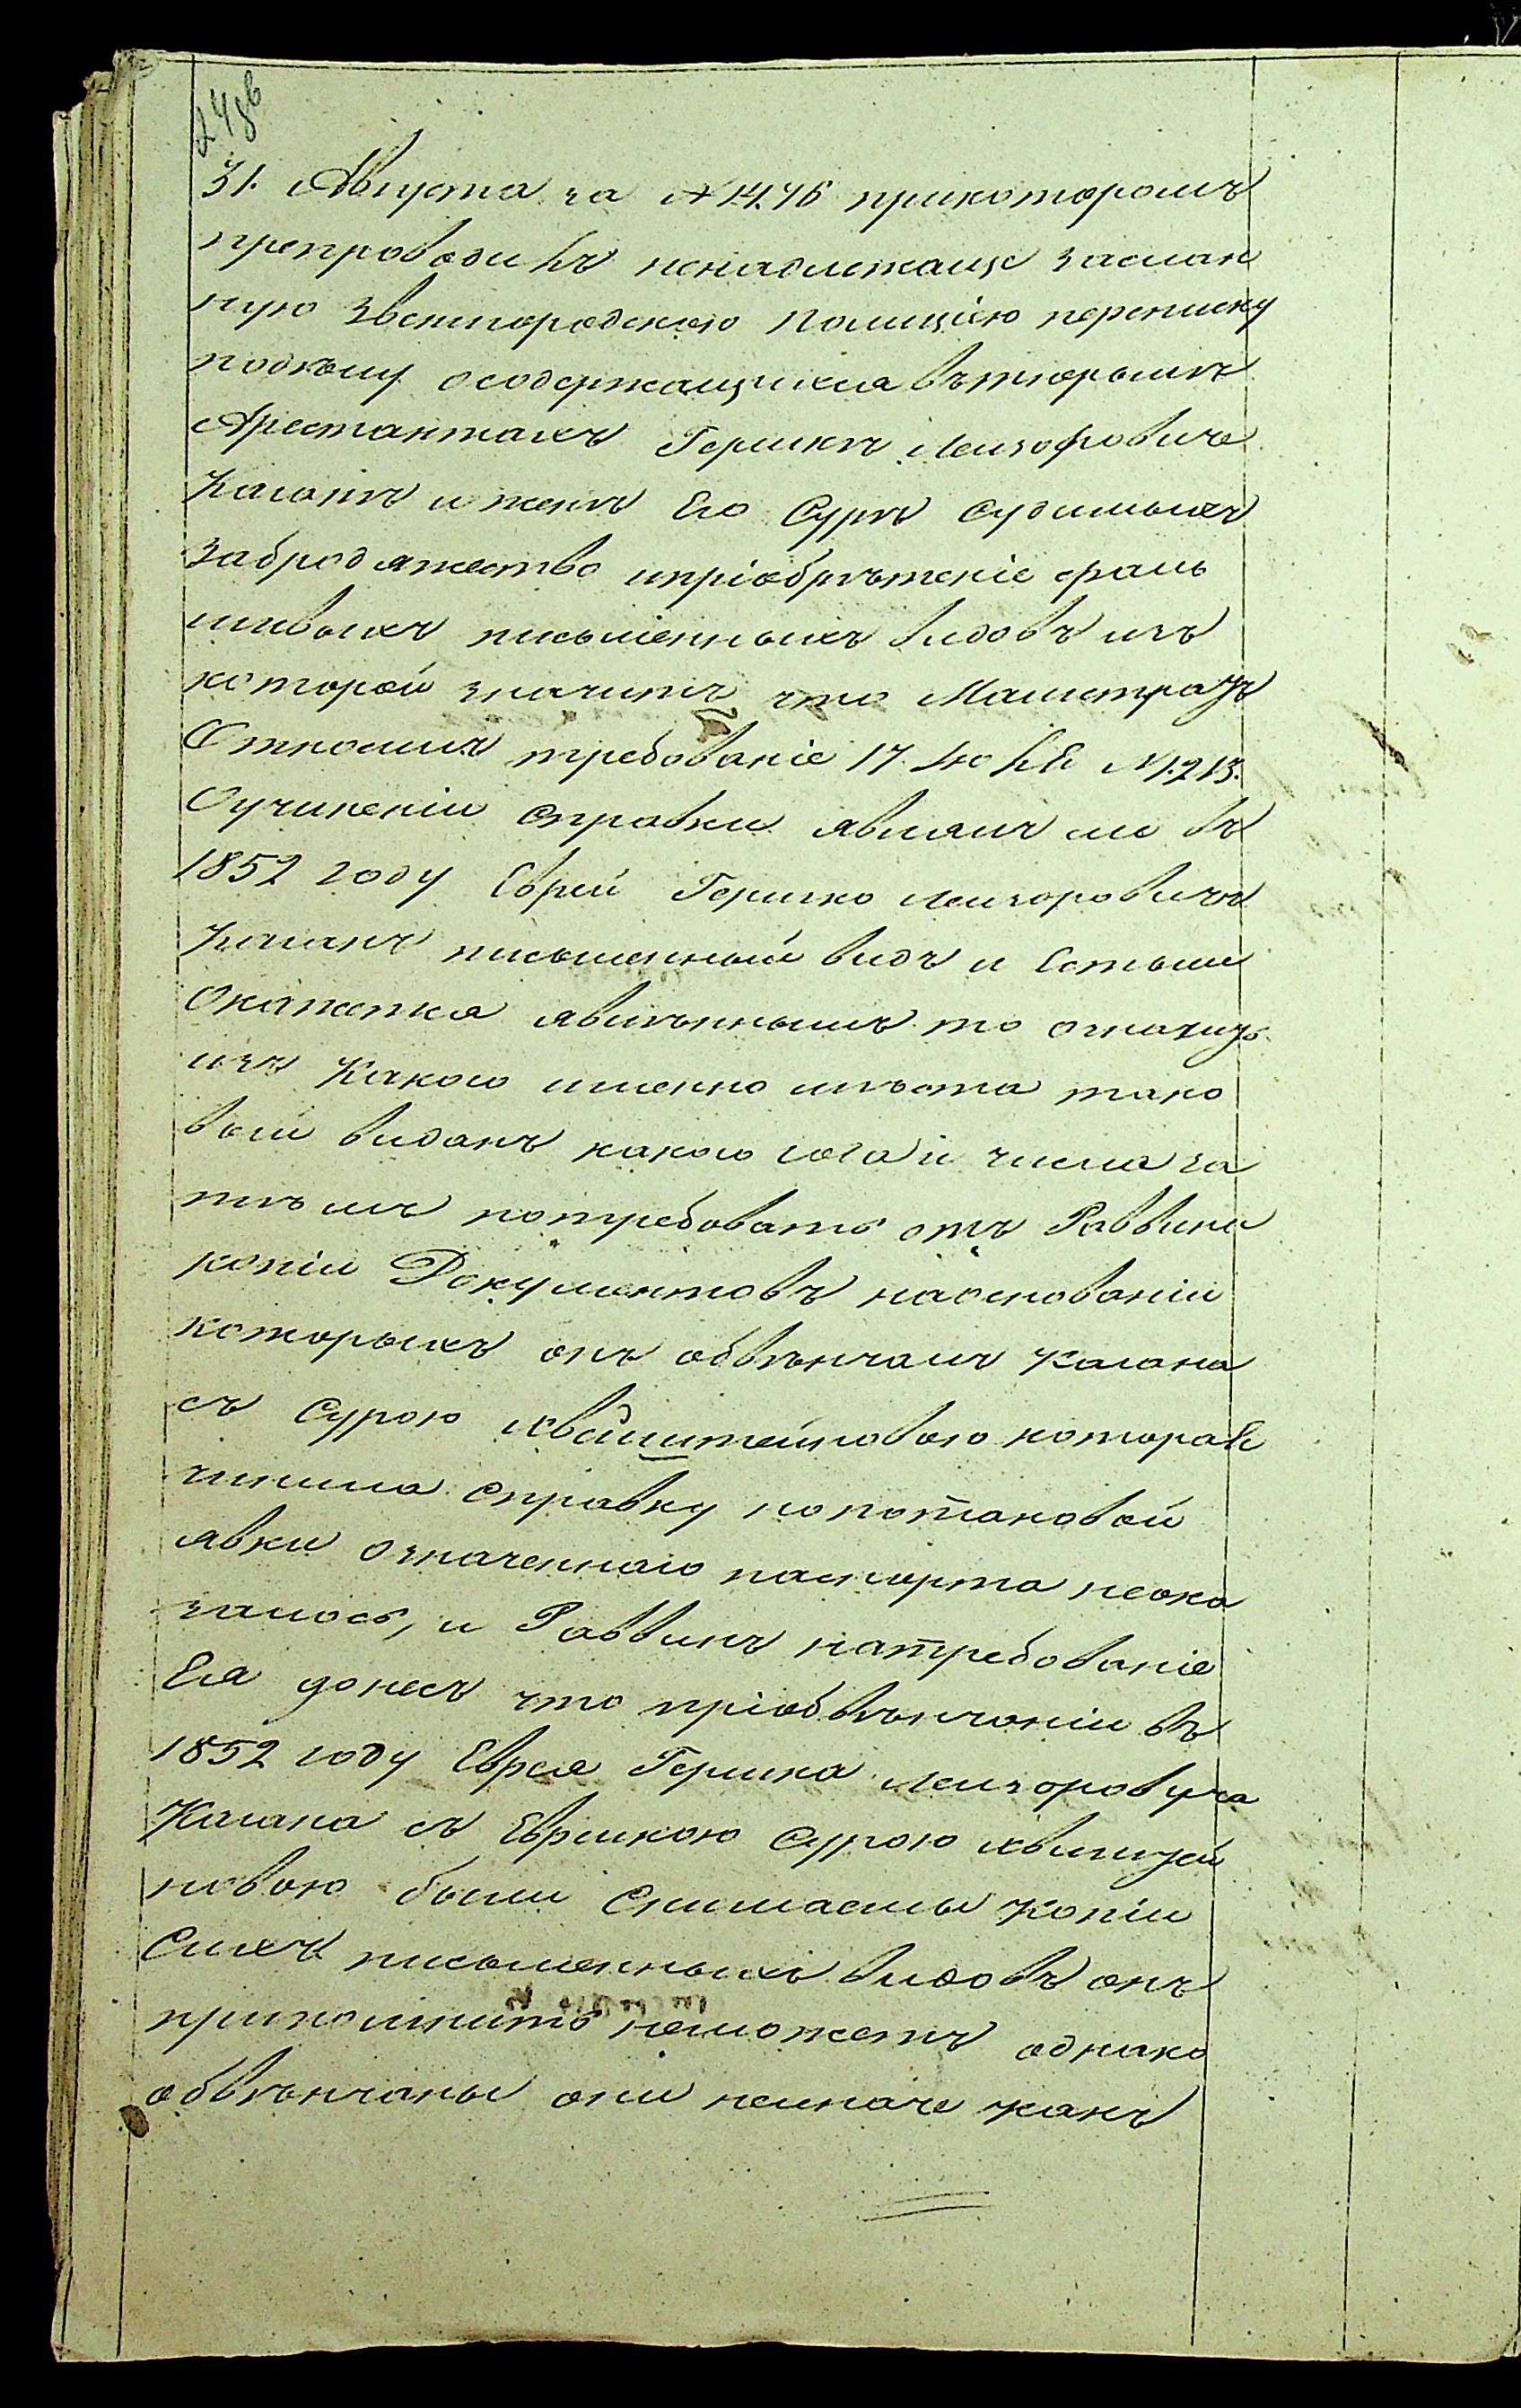 248б
31. Августа за № 1476 прикоторомъ
препроводивъ ненадлежаще заслан
ную Звенигородскою Полиціею переписку
подѣлу осодержащихся вътюрьмѣ
Арестантахъ Гершкѣ Лейзоровиче
Каганѣ и женѣ Его Сурѣ судимыхъ
забродяжество ипріобрѣтеніе фаль
шивыхъ письменныхъ видовъ изъ
которой значитъ что Магистратъ
Отколихъ требованіе 17 № 1213.
Оучиненіи Справки являлъ ли въ
1852 году Еврей Гершко Лейзоровичъ
Каганъ письменный видъ и Естьли
Окажется явленнымъ то означить
изъ Какого именно мѣста тако
вый виданъ какого года и числа за
тѣмъ потребовать отъ Раввина
копіи Документовъ наоснованіи
которыхъ онъ обвѣнчалъ Кагана
съ Сурою Квашштейновою которая
чинила Справку нопотаковой
явки означеннаго паспорта неока
залось, и Раввинъ натребованіе
Ея донесъ что пріобвѣнчаніи въ
1852 году Еврея Гершка Лейзоровича
Кагана съ Еврейкою Сурою Квиштей
новою были Снимаемы Копіи
Сихъ письменныхъ видовъ онъ
припомнить неможетъ однако
обвѣнчаны они неиначе какъ